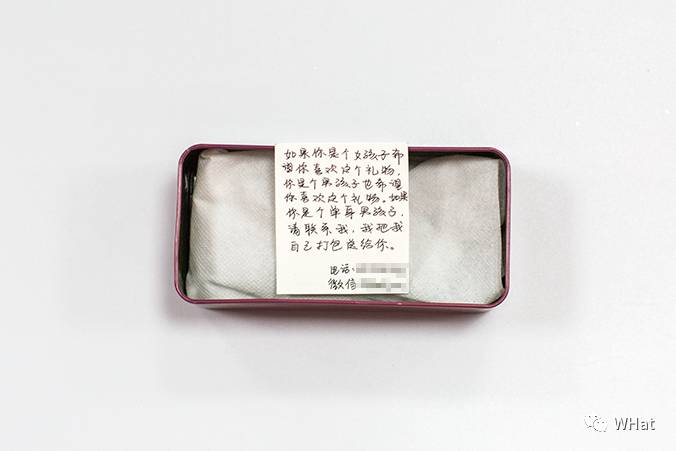 如果你是个女孩子希
望你喜欢这个礼物，
你是个男孩子也希望
你喜欢这个礼物。如果
你是个单身男孩子，
请联系我，我把我
自己打包送给你。
电话：
微信
WHat